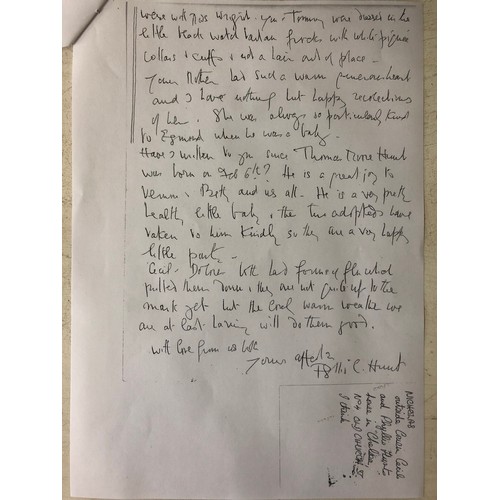 were with Miss Wright. you & Tommy were dressed in the
little black watch tartan frocks with white piqué
collars & cuffs & not a hair out of place -
Your Mother had such a warm generous heart
and I have nothing but happy recollections
of her. She was always so particularly kind
to Egmond when he was a baby -
Have I written to you since Thomas More Hunt
was born on Feb 6th? He is a great joy to
& Betty and us all. He is a very pretty
healthy little baby & the two adopteds have
taken to him kindly so they are a very happy
little party -
Cecil & both had forms of flu which
pulled them down & they are not quite up to the
mark yet but the lovely warm weather we
are at last having will do them good.
with love from us both
Yours affectly
Phyllis C. Hunt
NICHOLAS
outside Cousin Cecil
and Phyllis Hunt's
house in Chelsea,
No 4 OLD CHURCH ST.
I think